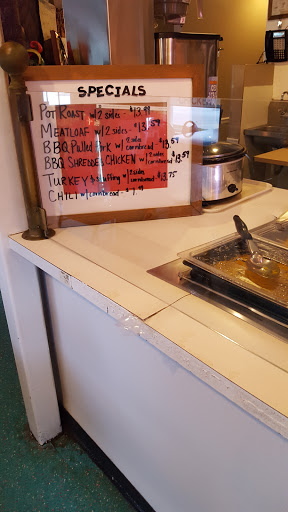 SPECIALS
POT ROAST w/ 2 sides - $13.99
MEATLOAF w/ 2 sides - $13.59
BBQ Pulled Pork w/ 2 sides cornbread - $13.59
BBQ SHREDDED CHICKEN w/ 2 sides cornbread - $13.59
TURKEY & stuffing w/ 2 sides cornbread - $13.75
CHILI w/ cornbread - $7.99